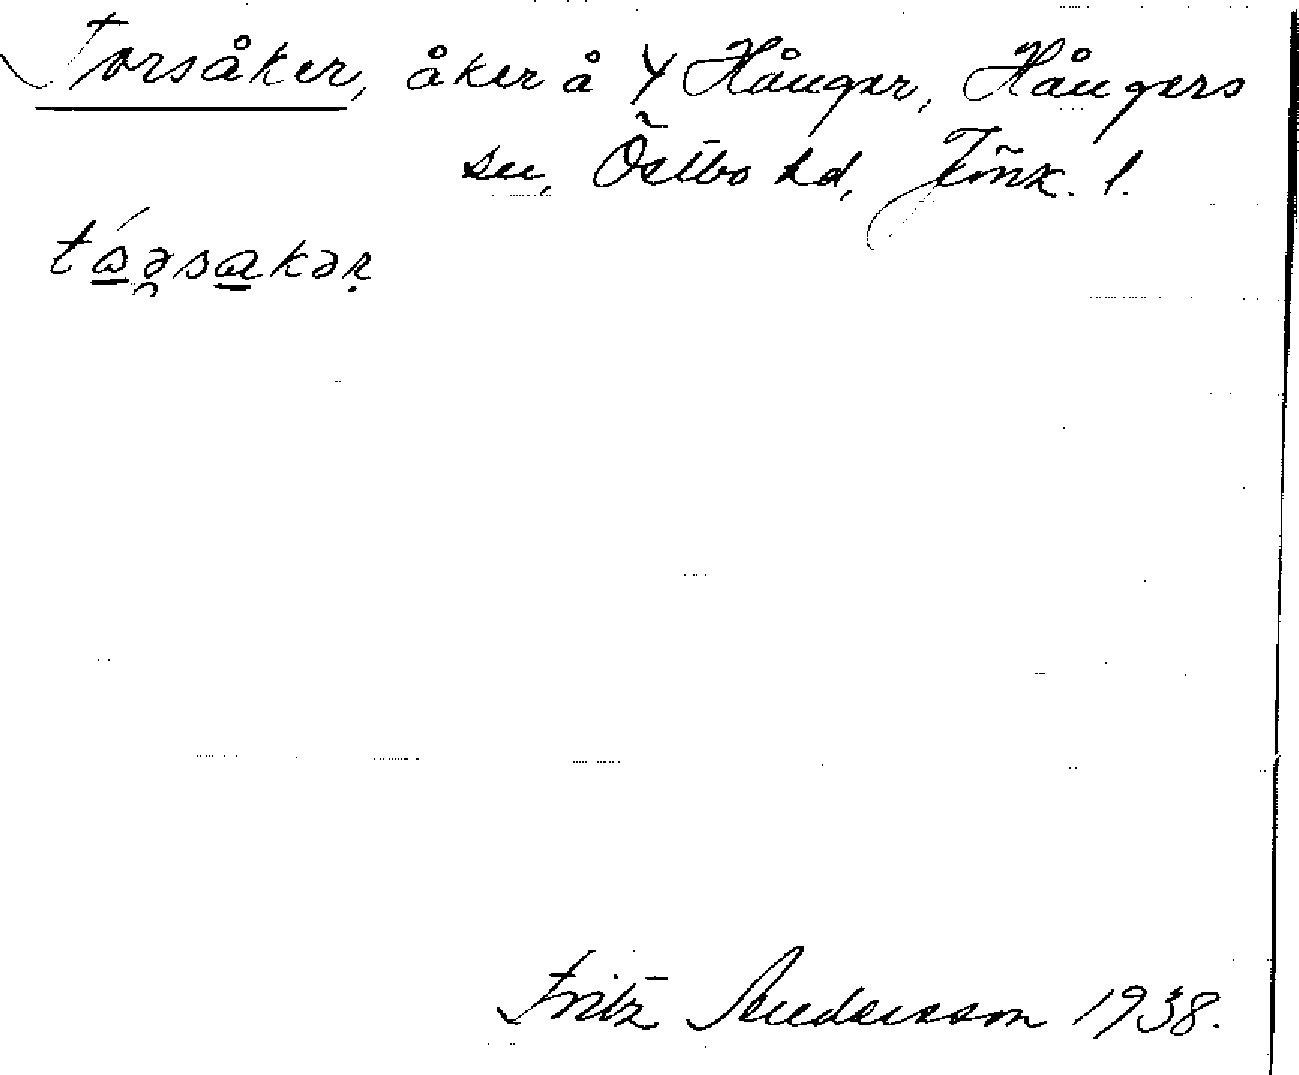 Torsåker, åker å Y Hånger, Hångers
sn, Östbo hd, Jönk. l.
tású̯əsakər
Fritz Andersson 1938.